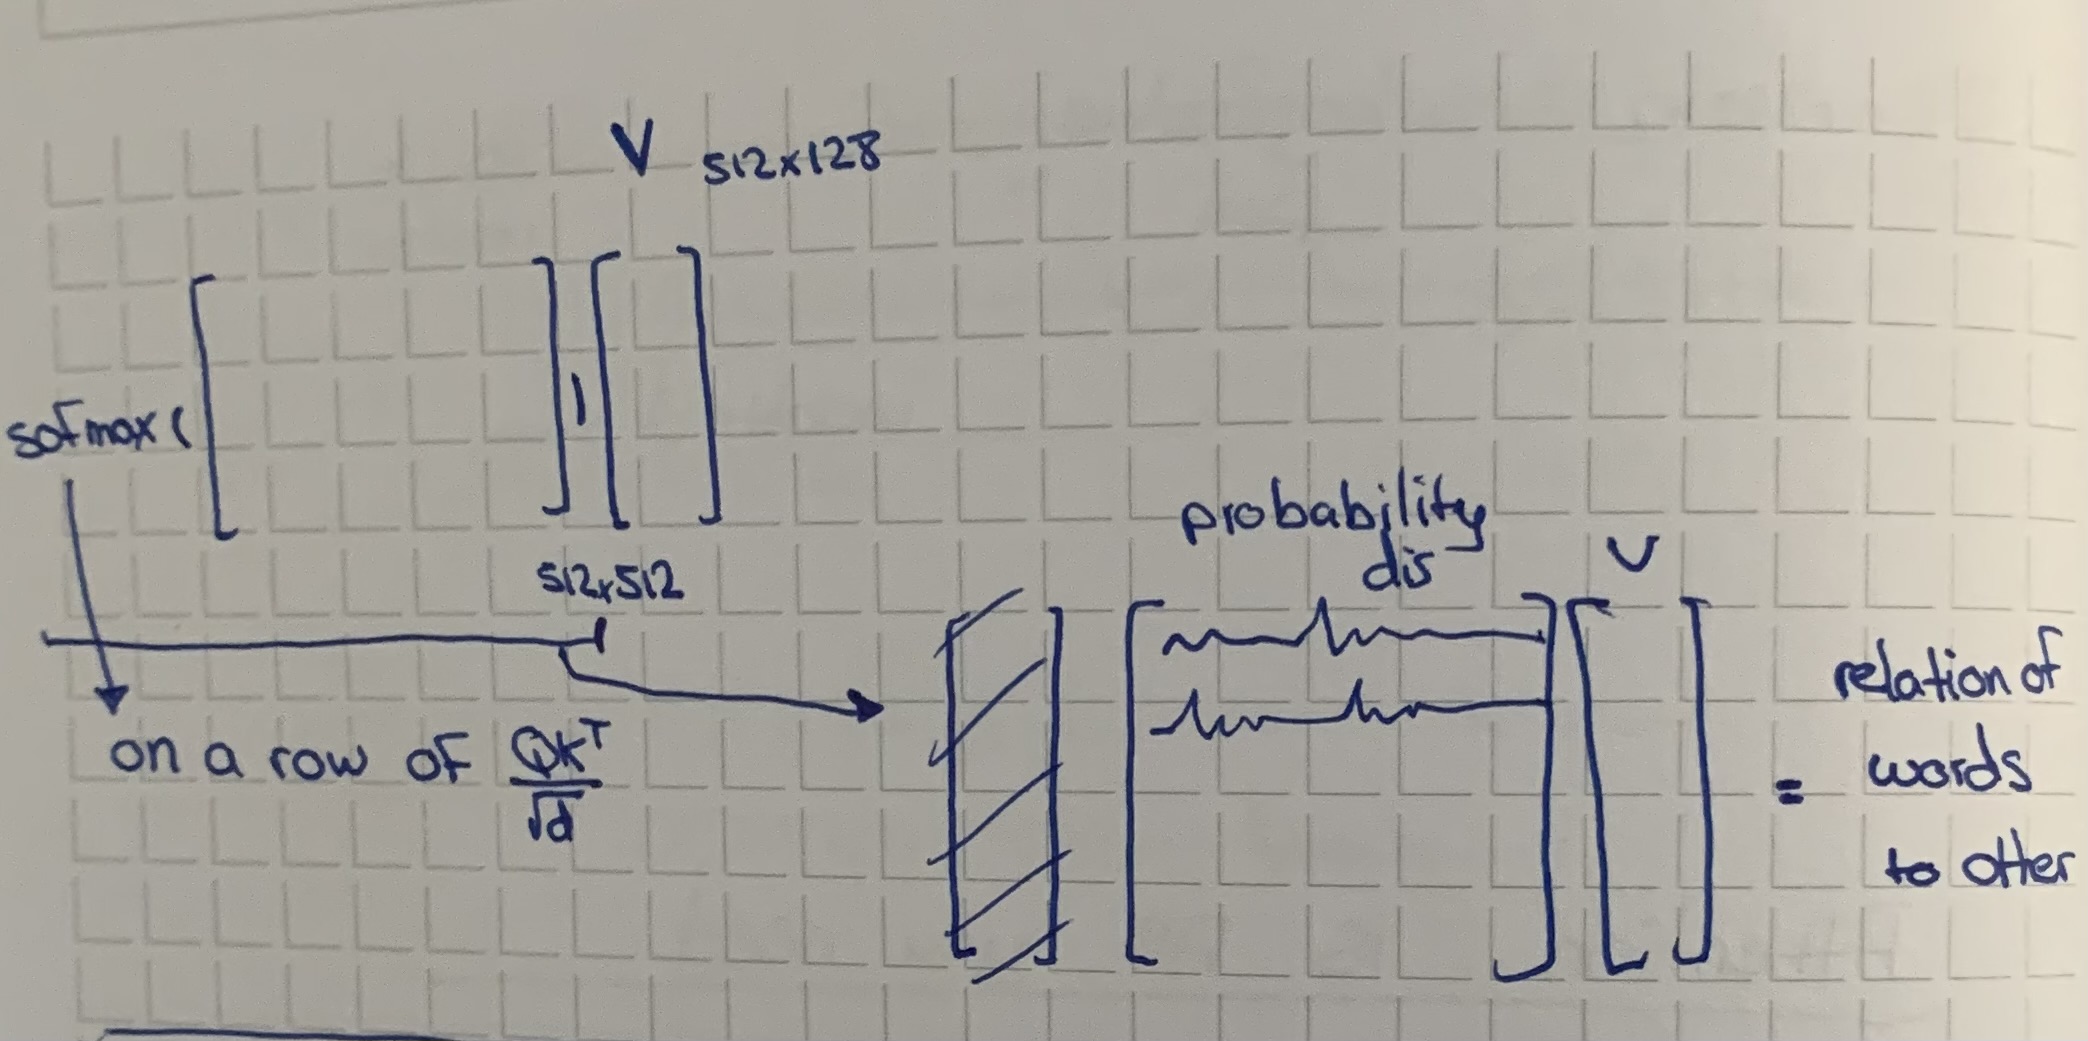 V 512x128
sofmax (
)
512x512
on a row of QK^T
√d
probability
dis
V
relation of
= words
to other